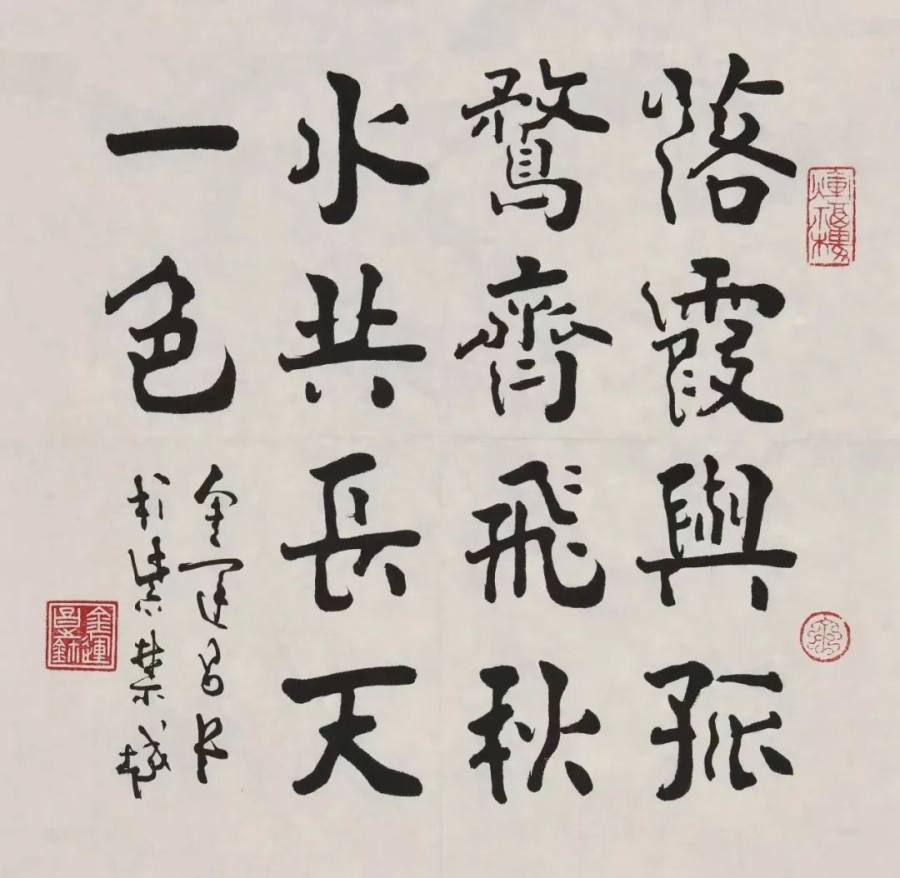 落霞與孤
鶩齊飛秋
水共長天
一色
金運昌书
於紫禁城
金運昌鉨